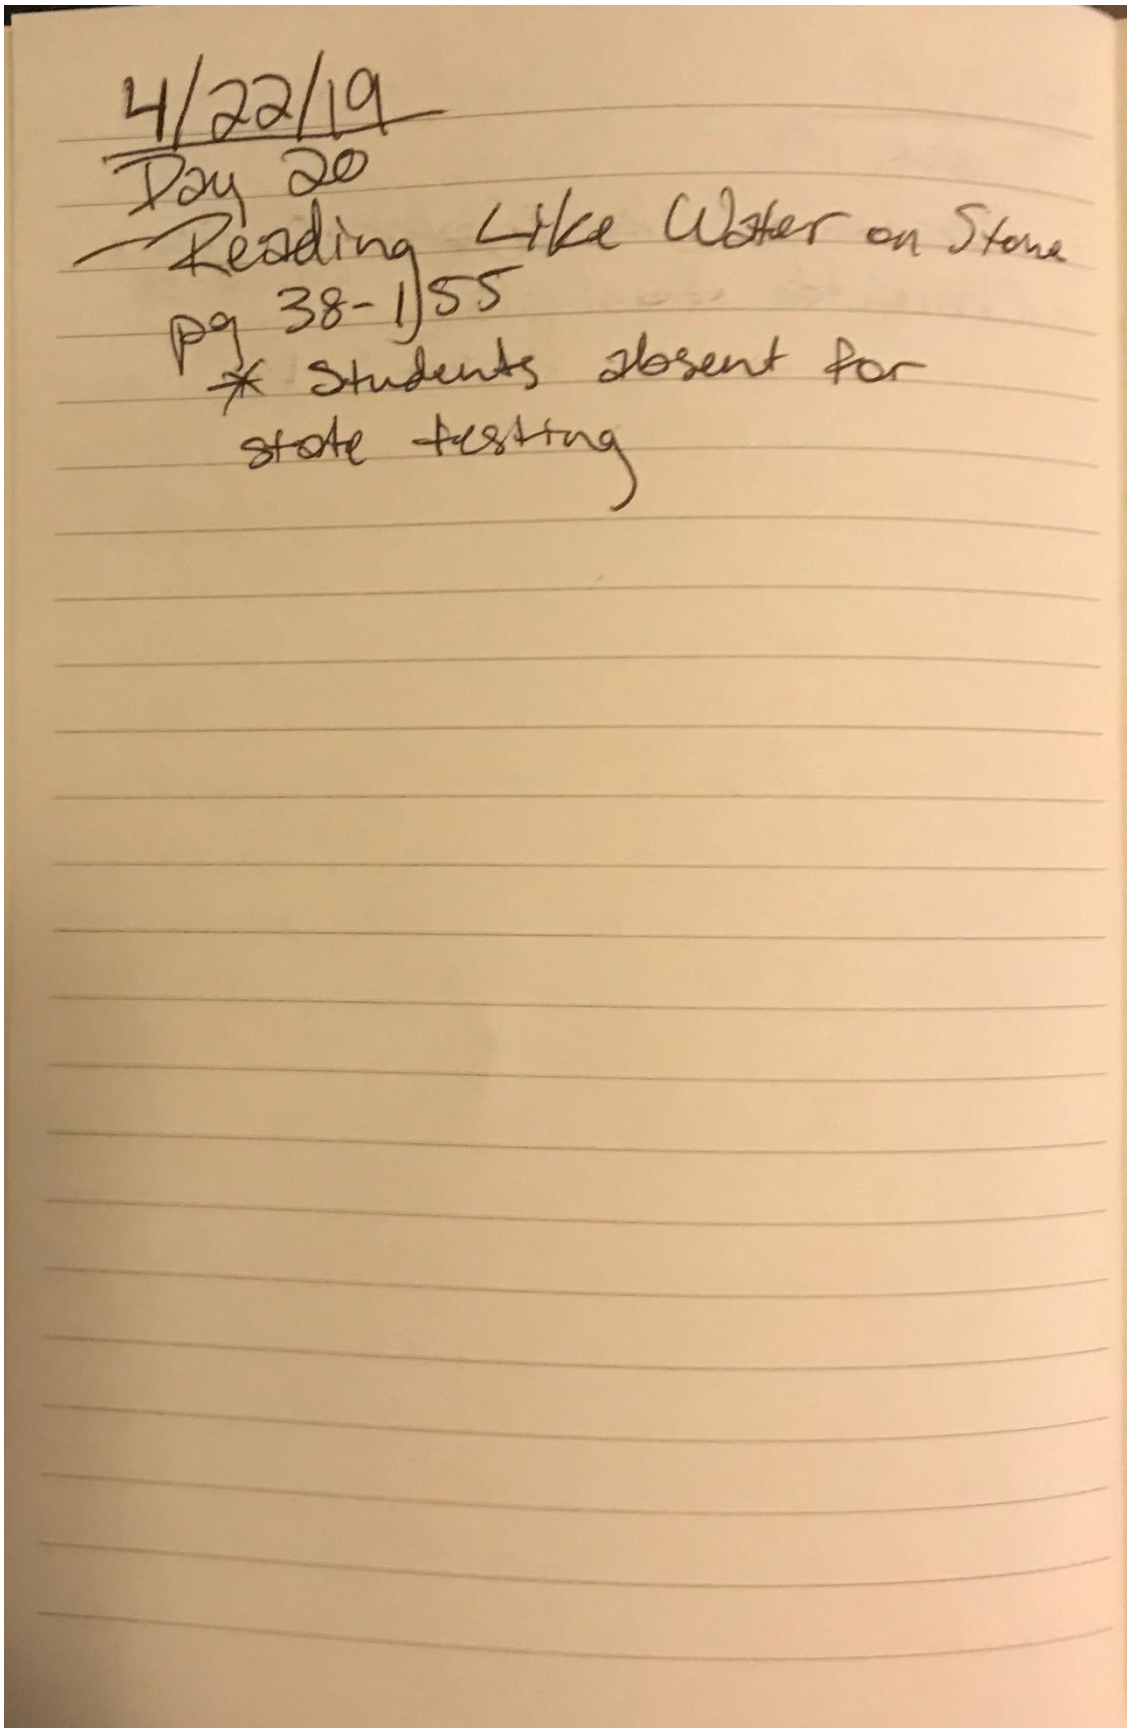 4/22/19
Day 20
- Reading Like Water on Stone
pg 38-155
* Students absent for
state testing